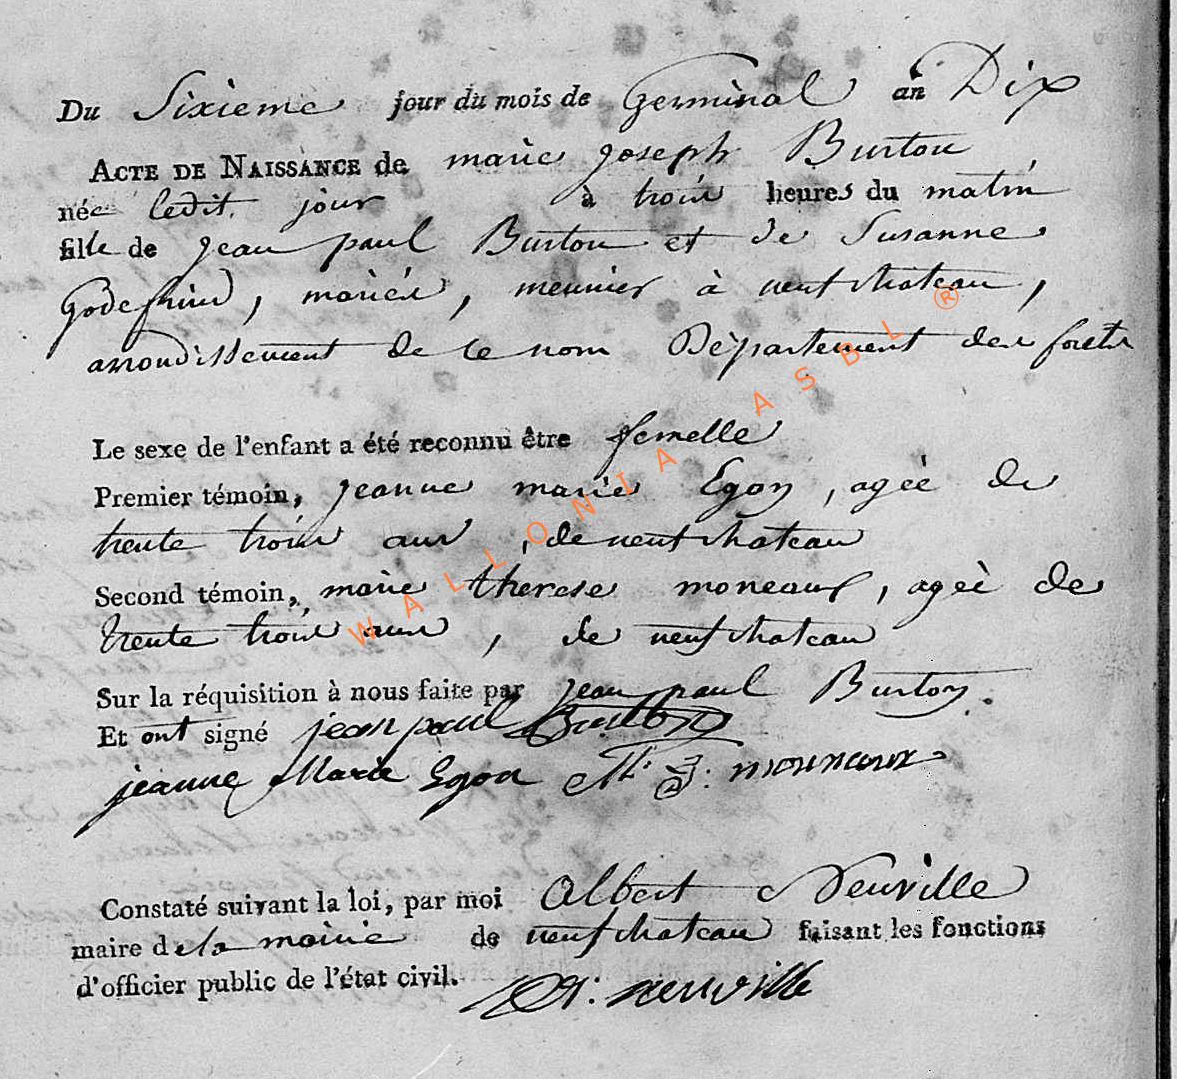 Du Sixieme jour du mois de Germinal an Dix
ACTE DE NAISSANCE de marie joseph Burton
née ledit jour à trois heures du matin
fille de jean paul Burton et de Susanne
Godefrin, mariés, meunier à neufchateau,
arrondissement de ce nom Département des forets
Le sexe de l'enfant a été reconnu être femelle
Premier témoin, jeanne marie Egon, ageè de
trente trois ans, de neufchateau
Second témoin, marie therese moneaux, ageè de
trente trois ans, de neufchateau
Sur la réquisition à nous faite par jean paul Burton.
Et ont signé jean paul Burton
jeanne Marie Egon M: T: mouneaux
Constaté suivant la loi, par moi Albert Neuville
maire de la mairie de neufchateau faisant les fonctions
d'officier public de l'état civil. neuville
WALLONIA ASBL ®